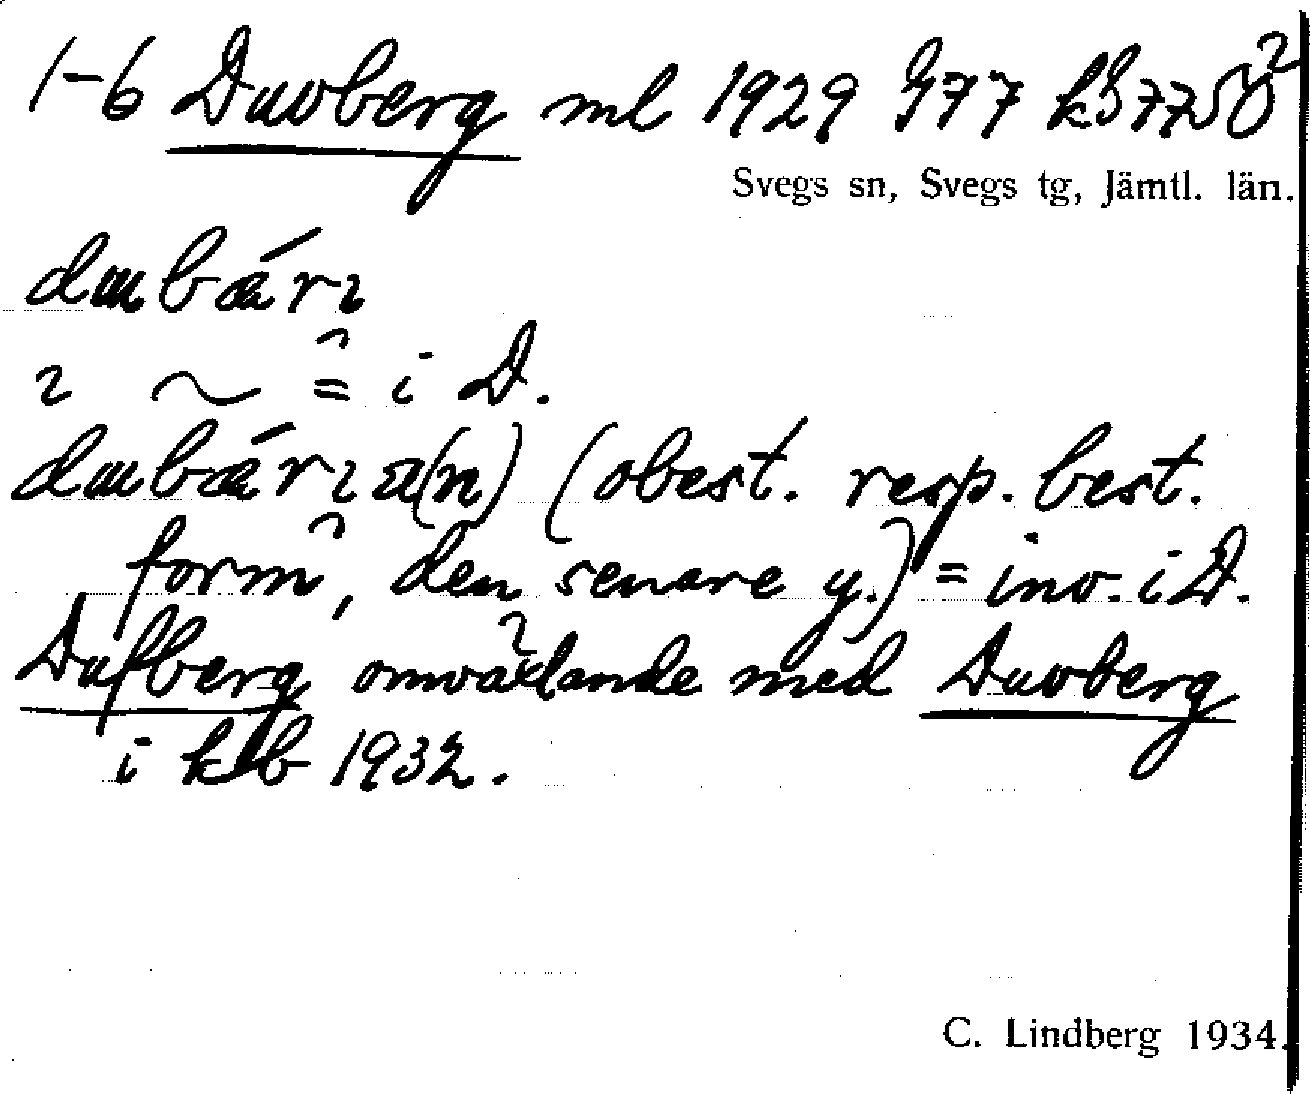 1-6 Duvberg ml 1929 G77 kB77SÖ
Svegs sn, Svegs tg, Jämtl. län.
dɯbǽrɿ
ɿ ~ = i D.
dɯbǽrɿ (n) (obest. resp. best.
form, den senare y.) = inv. i D.
Dufberg omväxlande med Duvberg
i kb 1932.
C. Lindberg 1934.